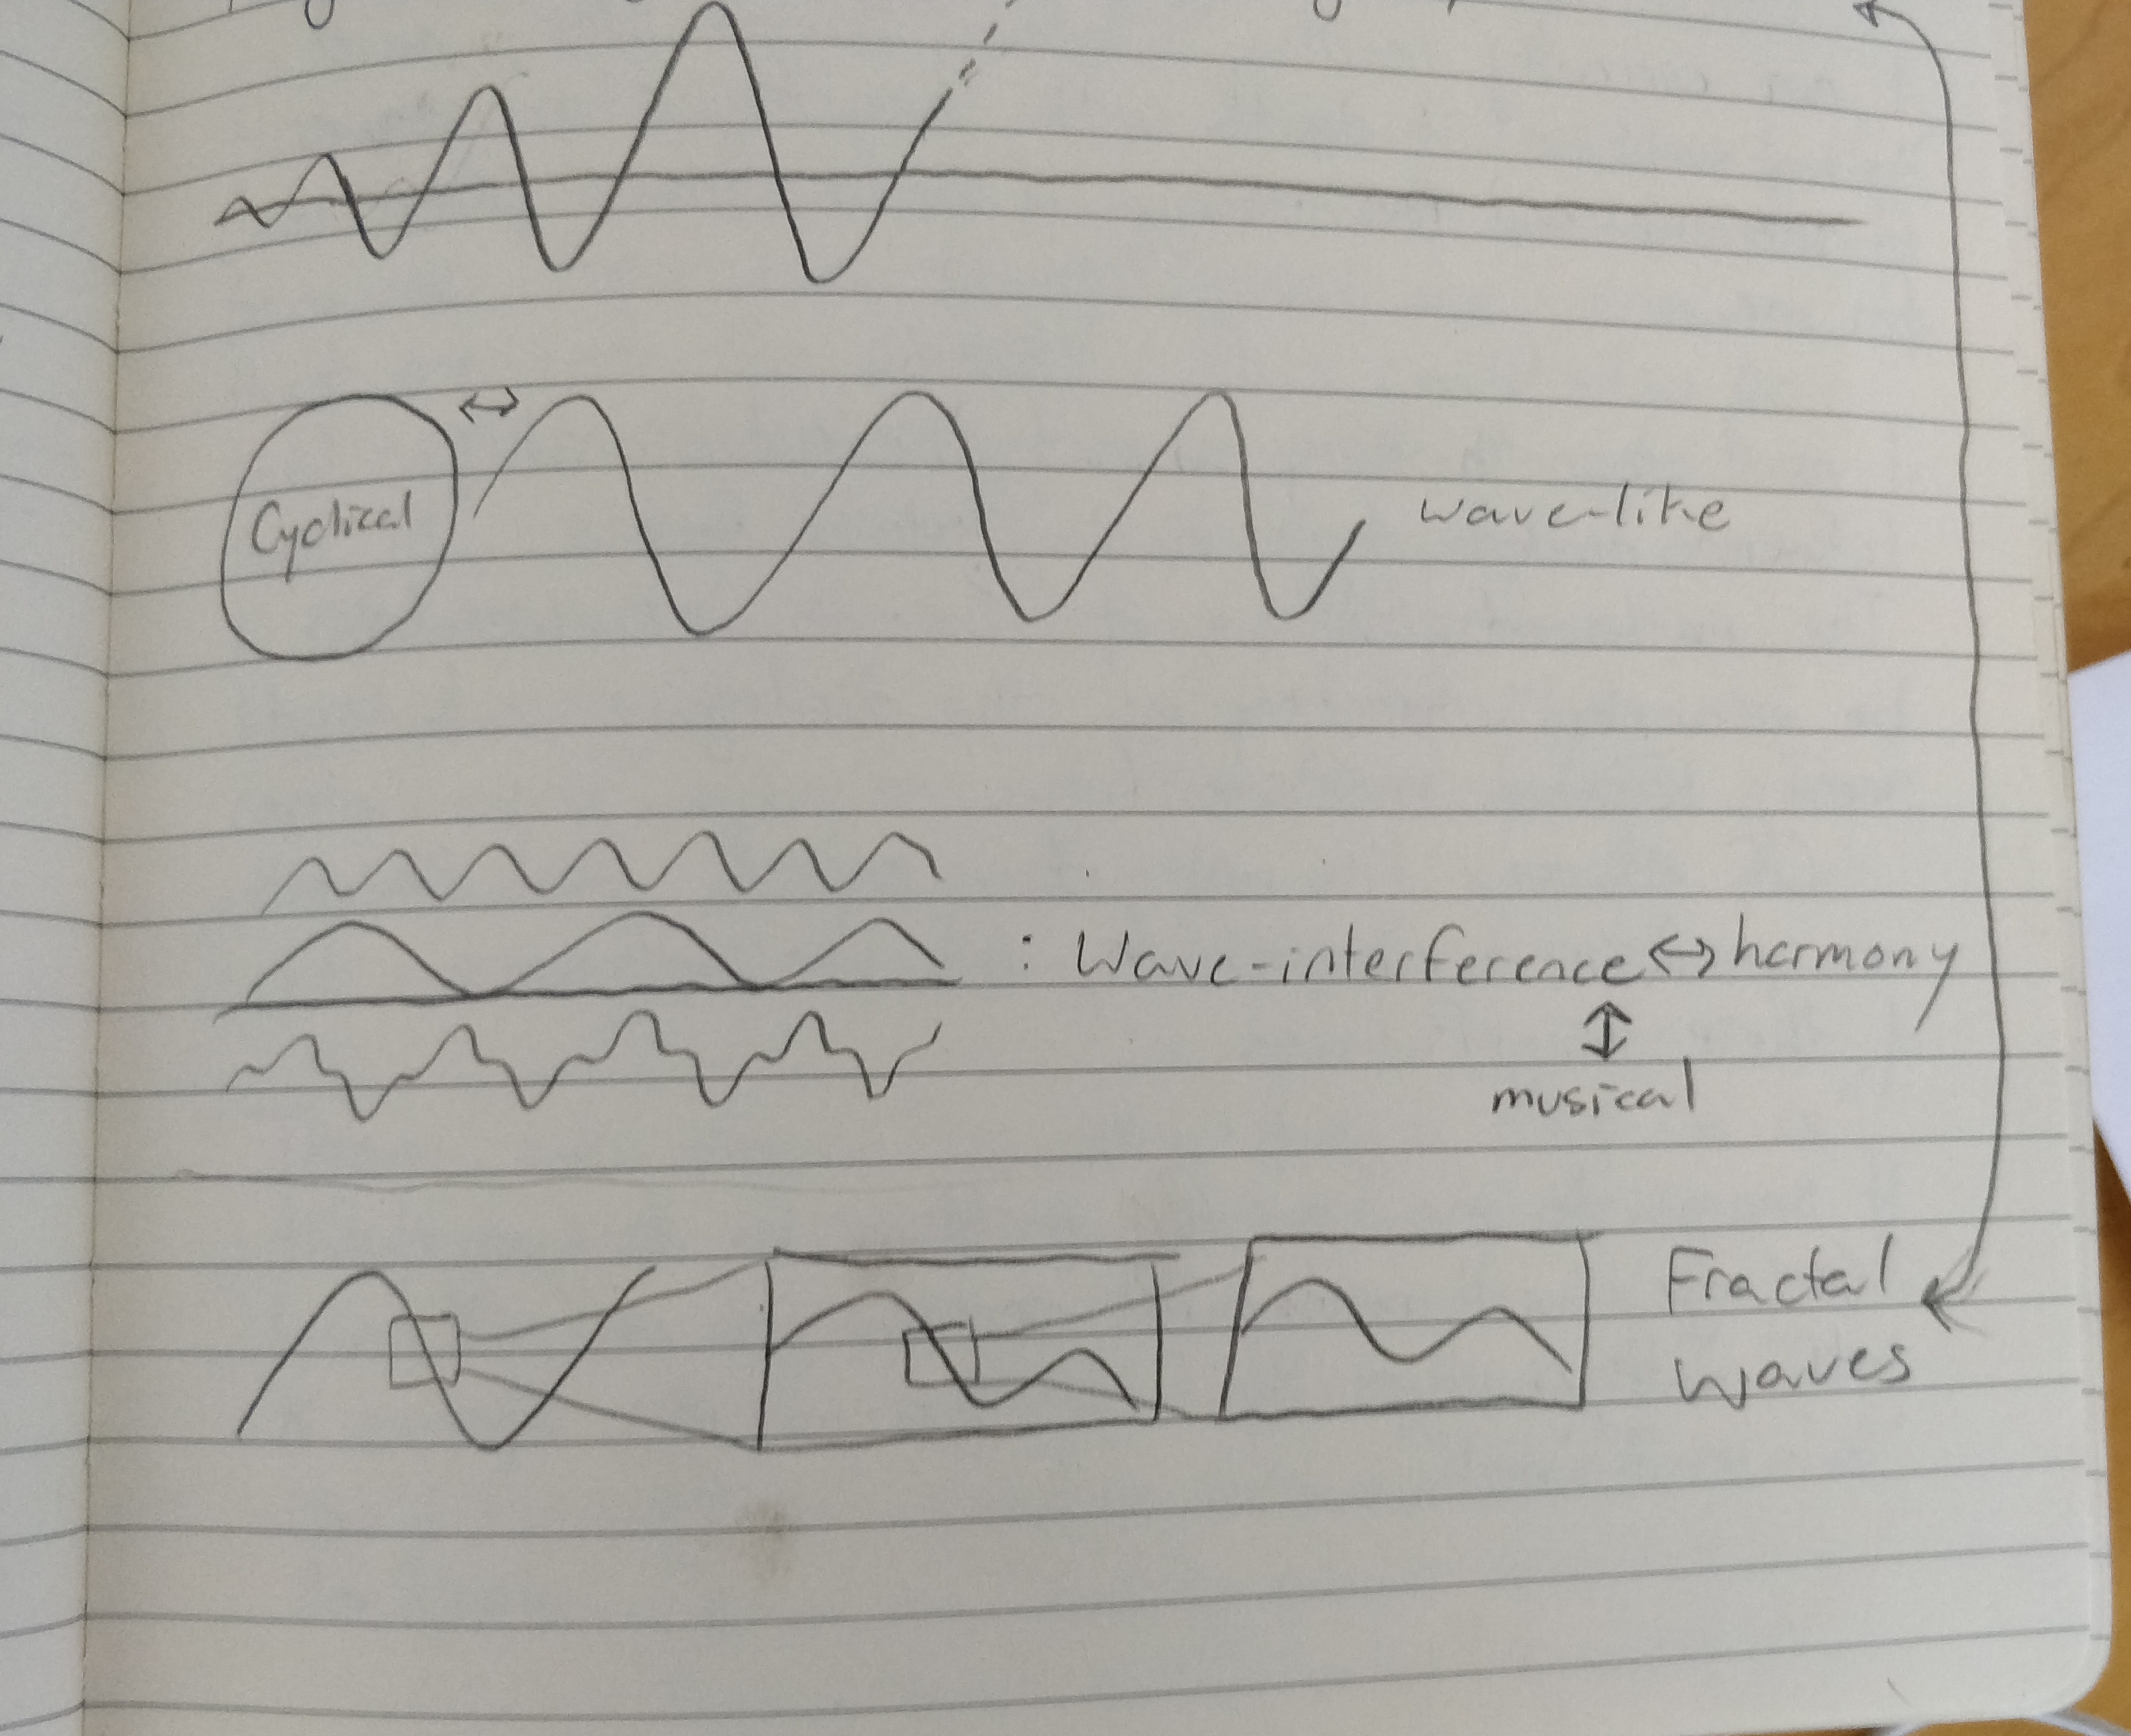 Cyclical
wave-like
: Wave-interference <-> harmony
musical
Fractal
waves